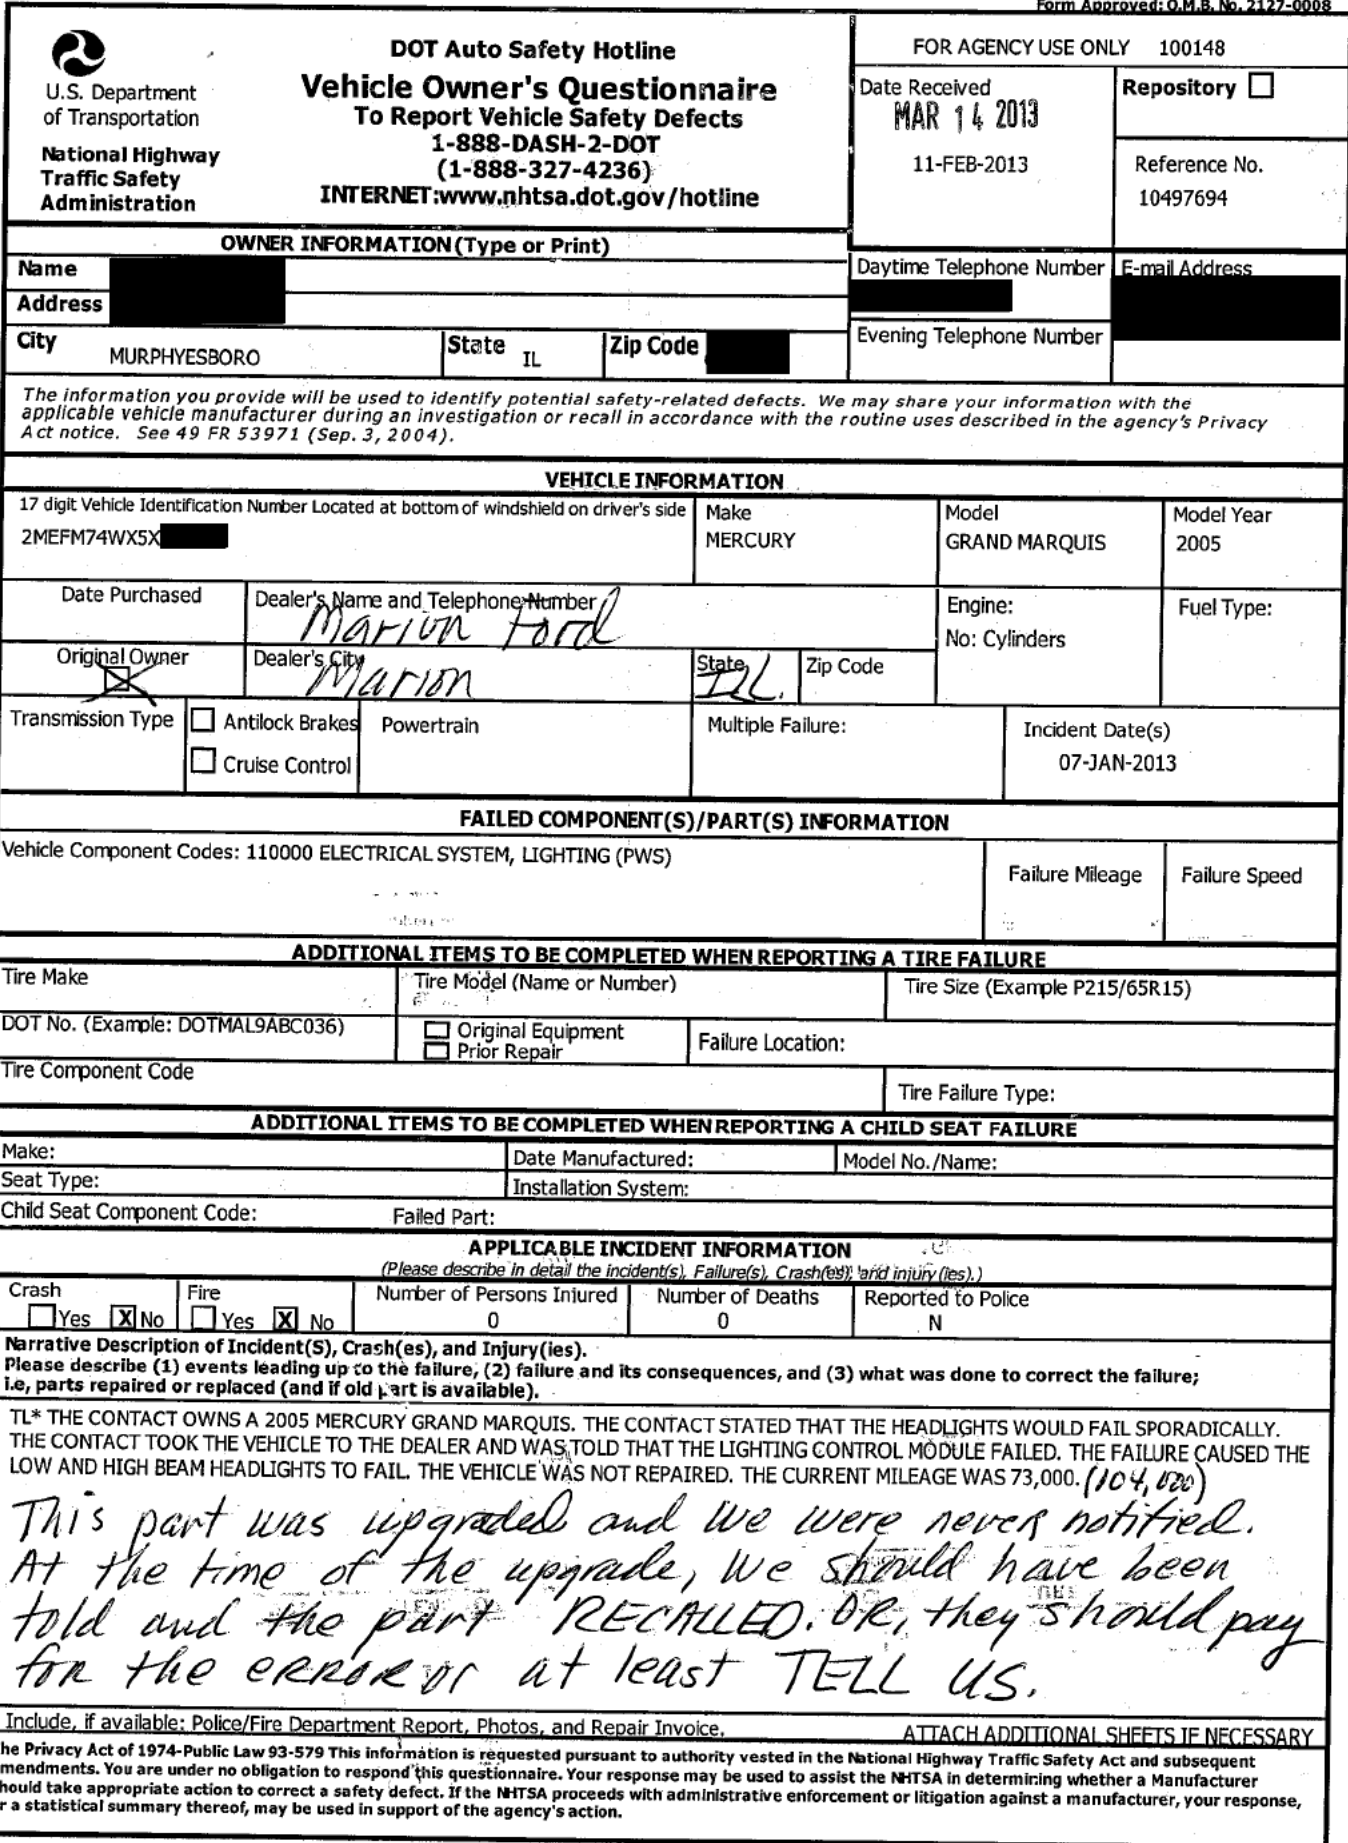 Form Approved: O.M.B. No. 2127-0008
U.S. Department
of Transportation
National Highway
Traffic Safety
Administration
DOT Auto Safety Hotline
Vehicle Owner's Questionnaire
To Report Vehicle Safety Defects
1-888-DASH-2-DOT
(1-888-327-4236)
INTERNET:www.nhtsa.dot.gov/hotline
FOR AGENCY USE ONLY 100148
Date Received
MAR 14 2013
11-FEB-2013
Repository
Reference No.
10497694
OWNER INFORMATION (Type or Print)
Name
Address
City MURPHYESBORO
State IL
Zip Code
Daytime Telephone Number
E-mail Address
Evening Telephone Number
The information you provide will be used to identify potential safety-related defects. We may share your information with the
applicable vehicle manufacturer during an investigation or recall in accordance with the routine uses described in the agency's Privacy
Act notice. See 49 FR 53971 (Sep. 3, 2004).
VEHICLE INFORMATION
17 digit Vehicle Identification Number Located at bottom of windshield on driver's side
2MEFM74WX5X
Make
MERCURY
Model
GRAND MARQUIS
Model Year
2005
Date Purchased
Dealer's Name and Telephone Number
Marion Ford
Engine:
No: Cylinders
Fuel Type:
Original Owner
Dealer's City
Marion
State
ILL.
Zip Code
Transmission Type
Antilock Brakes
Cruise Control
Powertrain
Multiple Failure:
Incident Date(s)
07-JAN-2013
FAILED COMPONENT(S)/PART(S) INFORMATION
Vehicle Component Codes: 110000 ELECTRICAL SYSTEM, LIGHTING (PWS)
Failure Mileage
Failure Speed
ADDITIONAL ITEMS TO BE COMPLETED WHEN REPORTING A TIRE FAILURE
Tire Make
Tire Model (Name or Number)
Tire Size (Example P215/65R15)
DOT No. (Example: DOTMAL9ABC036)
Original Equipment
Prior Repair
Failure Location:
Tire Component Code
Tire Failure Type:
ADDITIONAL ITEMS TO BE COMPLETED WHEN REPORTING A CHILD SEAT FAILURE
Make:
Date Manufactured:
Model No./Name:
Seat Type:
Installation System:
Child Seat Component Code:
Failed Part:
APPLICABLE INCIDENT INFORMATION
(Please describe in detail the incident(s), Failure(s), Crash(es), and injury(ies).)
Crash
Yes X No
Fire
Yes X No
Number of Persons Injured
0
Number of Deaths
0
Reported to Police
N
Narrative Description of Incident(S), Crash(es), and Injury(ies).
Please describe (1) events leading up to the failure, (2) failure and its consequences, and (3) what was done to correct the failure;
i.e, parts repaired or replaced (and if old part is available).
TL* THE CONTACT OWNS A 2005 MERCURY GRAND MARQUIS. THE CONTACT STATED THAT THE HEADLIGHTS WOULD FAIL SPORADICALLY.
THE CONTACT TOOK THE VEHICLE TO THE DEALER AND WAS TOLD THAT THE LIGHTING CONTROL MODULE FAILED. THE FAILURE CAUSED THE
LOW AND HIGH BEAM HEADLIGHTS TO FAIL. THE VEHICLE WAS NOT REPAIRED. THE CURRENT MILEAGE WAS 73,000. (104,000)
This part was upgraded and we were never notified.
At the time of the upgrade, we should have been
told and the part RECALLED. OR, they should pay
for the ERROR or at least TELL US.
Include, if available: Police/Fire Department Report, Photos, and Repair Invoice.
ATTACH ADDITIONAL SHEETS IF NECESSARY
he Privacy Act of 1974-Public Law 93-579 This information is requested pursuant to authority vested in the National Highway Traffic Safety Act and subsequent
mendments. You are under no obligation to respond this questionnaire. Your response may be used to assist the NHTSA in determining whether a Manufacturer
hould take appropriate action to correct a safety defect. If the NHTSA proceeds with administrative enforcement or litigation against a manufacturer, your response,
r a statistical summary thereof, may be used in support of the agency's action.